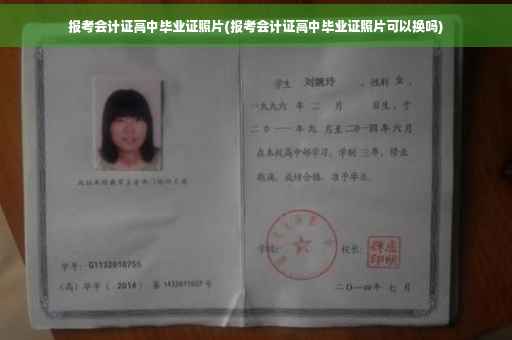 报考会计证高中毕业证照片(报考会计证高中毕业证照片可以换吗)
学生 刘婉玲 ，性别 女 ，
一九九六 年 二 月 日生，于
二〇一一年九 月至二〇一四年六月
在本校高中部学习，学制 三年，修业
期满，成绩合格，准予毕业。
学校： 校长：
学号：G1132010755
（高）毕字（ 2014 ）第 1432011027 号
二〇一四年 七 月